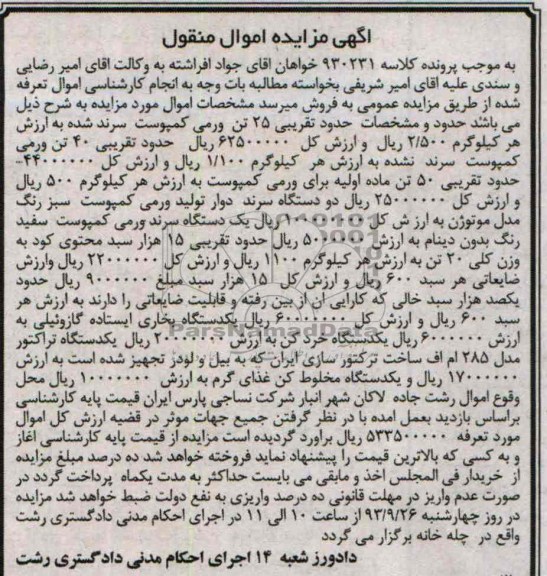 آگهی مزایده اموال منقول
به موجب پرونده کلاسه ۹۳۰۲۳۱ خواهان اقای جواد افراشته به وکالت اقای امیر رضایی
و سندی علیه اقای امیر شریفی بخواسته مطالبه بات وجه به انجام کارشناسی اموال تعرفه
شده از طریق مزایده عمومی به فروش میرسد مشخصات اموال مورد مزایده به شرح ذیل
می باشد حدود و مشخصات حدود تقریبی ۲۵ تن ورمی کمپوست سرند شده به ارزش
هر کیلوگرم ۲/۵۰۰ ریال و ارزش کل ۶۲۵۰۰۰۰۰ ریال حدود تقریبی ۴۰ تن ورمی
کمپوست سرند نشده به ارزش هر کیلوگرم ۱/۱۰۰ ریال و ارزش کل ۴۴۰۰۰۰۰۰-
حدود تقریبی ۵۰ تن ماده اولیه برای ورمی کمپوست به ارزش هر کیلوگرم ۵۰۰ ریال
و ارزش کل ۲۵۰۰۰۰۰۰ ریال دو دستگاه سرند دوار تولید ورمی کمپوست سبز رنگ
مدل موتوژن به ارز ش کل ریال یک دستگاه سرند ورمی کمپوست سفید
رنگ بدون دینام به ارزش ریال حدود تقریبی ۱۵ هزار سبد محتوی کود به
وزن کلی ۲۰ تن به ارزش هر کیلوگرم ۱۱۰۰ ریال و ارزش کل ۲۲۰۰۰۰۰۰ ریال وارزش
ضایعاتی هر سبد ۶۰۰ ریال و ارزش کل ۱۵ هزار سبد مبلغ ۹۰۰۰۰۰۰ ریال حدود
یکصد هزار سبد خالی که کارایی آن از بین رفته و قابلیت ضایعاتی را دارند به ارزش هر
سبد ۶۰۰ ریال و ارزش کل ۶۰۰۰۰۰۰۰ ریال یکدستگاه بخاری ایستاده گازوئیلی به
ارزش ۶۰۰۰۰۰۰ ریال یکدستگاه خرد کن به ارزش ریال یکدستگاه تراکتور
مدل ۲۸۵ ام اف ساخت ترکتور سازی ایران که به بیل و لودر تجهیز شده است به ارزش
۱۷۰۰۰۰۰۰۰ ریال و یکدستگاه مخلوط کن غذای گرم به ارزش ۱۰۰۰۰۰۰۰ ریال محل
وقوع اموال رشت جاده لاکان شهر انبار شرکت نساجی پارس ایران قیمت پایه کارشناسی
براساس بازدید بعمل امده با در نظر گرفتن جمیع جهات موثر در قضیه ارزش کل اموال
مورد تعرفه ۵۳۳۵۰۰۰۰۰ ریال براورد گردیده است مزایده از قیمت پایه کارشناسی اغاز
و به کسی که بالاترین قیمت را پیشنهاد نماید فروخته خواهد شد ده درصد مبلغ مزایده
از خریدار فی المجلس اخذ و مابقی می بایست حداکثر به مدت یکماه پرداخت گردد در
صورت عدم واریز در مهلت قانونی ده درصد واریزی به نفع دولت ضبط خواهد شد مزایده
در روز چهارشنبه ۹۳/۹/۲۶ از ساعت ۱۰ الی ۱۱ در اجرای احکام مدنی دادگستری رشت
واقع در چله خانه برگزار می گردد
دادورز شعبه ۱۴ اجرای احکام مدنی دادگستری رشت
ParsNamadData